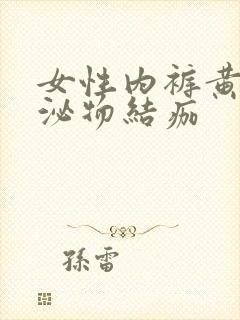 女性内裤黄
泌物結痂
孫雷